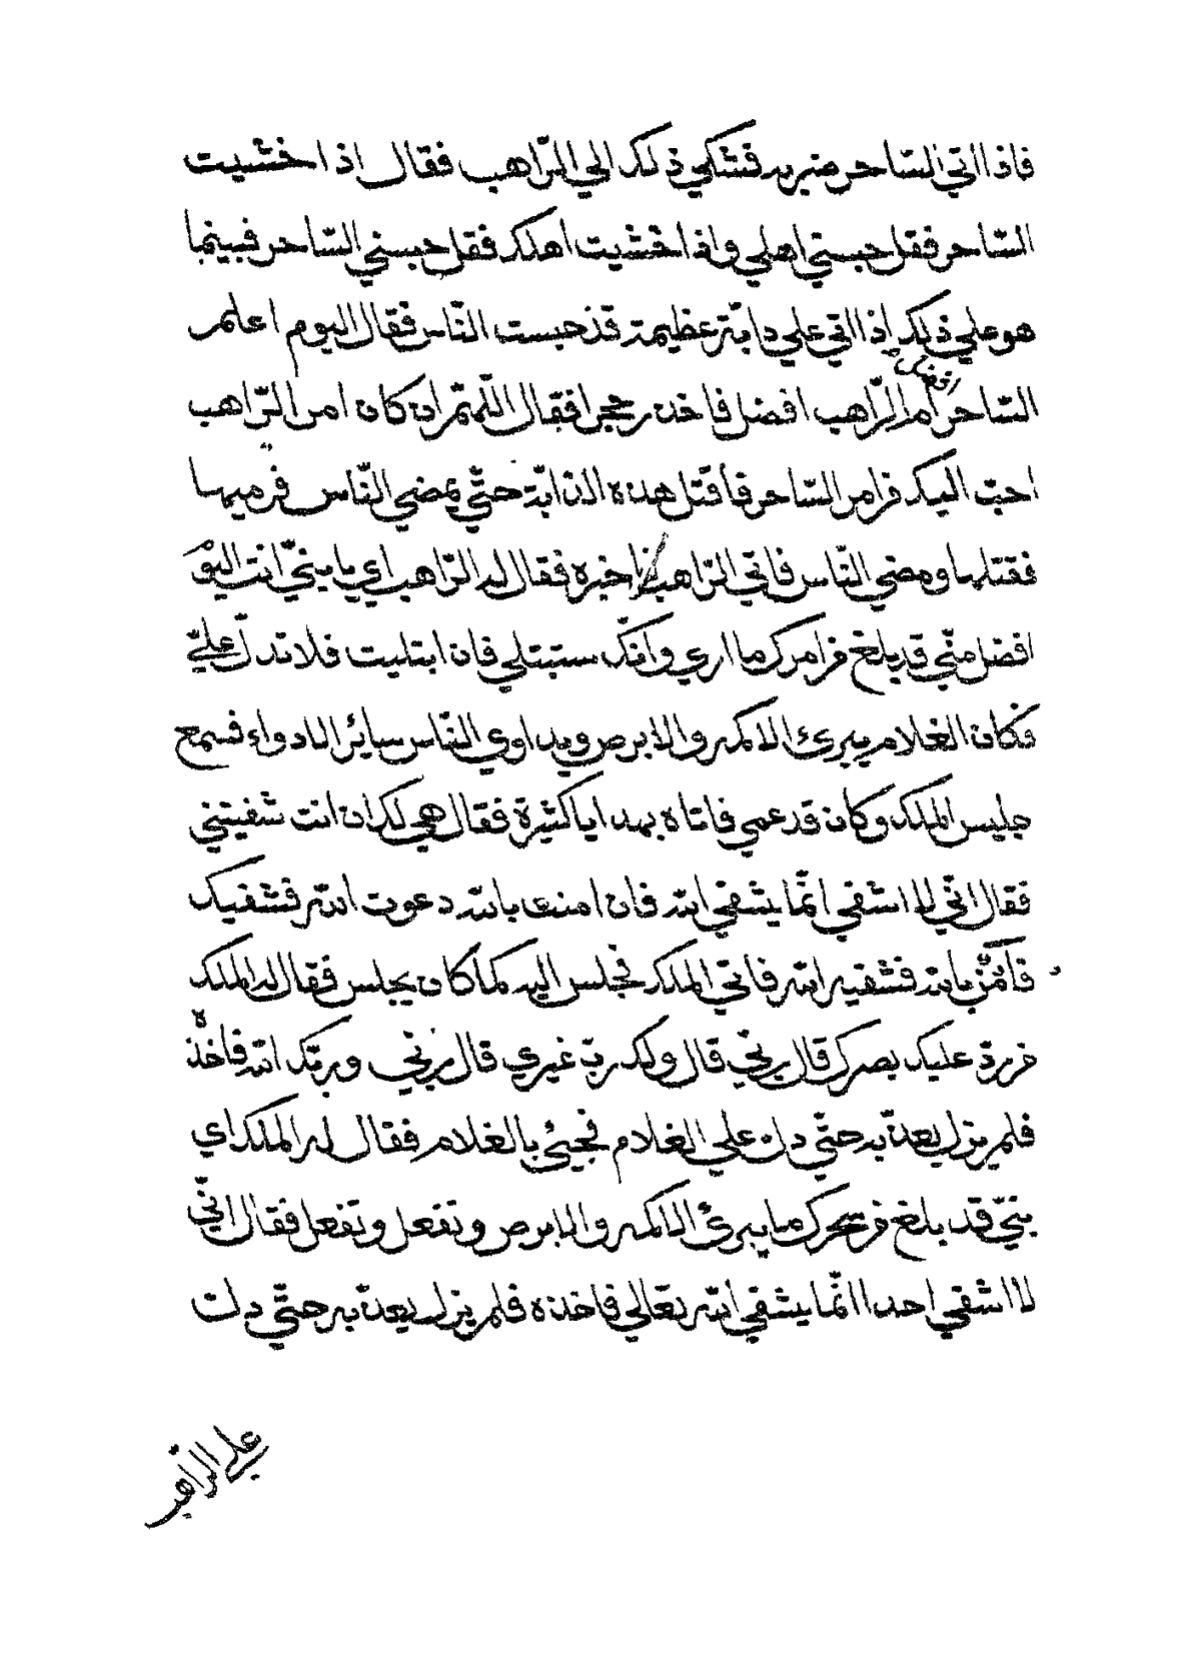 فاذا اتي الساحر ضربه فشكي ذلك الي الرّاهب فقال اذا خشيت
السّاحر فقل حبسني اهلي واذا خشيت اهلك فقل حبسني السّاحر فبينما
هو علي ذلك اذا اتي علي دابّة عظيمة قد حبست النّاس فقال اليوم اعلم
السّاحر افضل ام الرّاهب افضل فاخذ حجرا فقال اللّهمّ ان كان امر الرّاهب
احبّ اليك من امر السّاحر فاقتل هذه الدابّة حتّي يمضي النّاس فرميها
فقتلها ومضي النّاس فاتي الرّاهب فاخبره فقال له الرّاهب اي بنيّ انت اليوم
افضل منّي قد بلغ من امرك ما اري وانّك ستبتلي فان ابتليت فلا تدلّ عليّ
فكان الغلام يبرئ الاكمه والابرص ويداوي النّاس سائر الادواء فسمع
جليس الملك وكان قد عمي فاتاه بهدايا كثيرة فقال هي لك ان انت شفيتني
فقال انّي لا اشفي انّما يشفي الله فان امنت بالله دعوت الله فشفيك
فآمن بالله فشفيه الله فاتي الملك فجلس اليه كما كان يجلس فقال له الملك
من ردّ عليك بصرك قال ربّي قال ولك ربّ غيري قال ربّي وربّك الله فاخذه
فلم يزل يعذّبه حتّي دل علي الغلام فجيئ بالغلام فقال له الملك اي
بنيّ قد بلغ من سحرك ما يبرئ الاكمه والابرص وتفعل وتفعل فقال انّي
لا اشفي احدا انّما يشفي الله تعالي فاخذه فلم يزل يعذّبه حتّي دل
علي الرّاهب